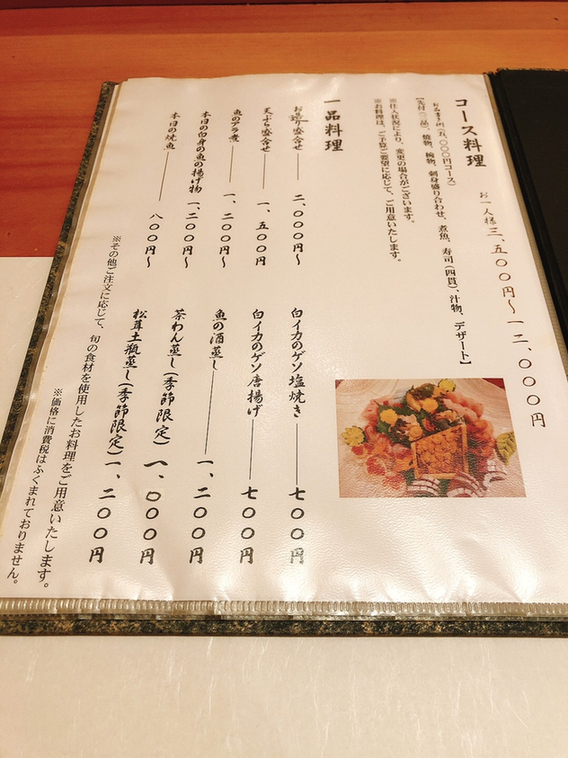 コース料理
お一人様 三、五〇〇円〜一二、〇〇〇円
おまかせ例(五、〇〇〇円コース)
【先付(二品)、焼物、椀物、刺身盛り合わせ、煮魚、寿司(四貫)、汁物、デザート】
※仕入状況により、変更の場合がございます。
※お料理は、ご予算ご要望に応じて、ご用意いたします。
一品料理
お造り盛合せ 二、〇〇〇円〜
天ぷら盛合せ 一、五〇〇円
魚のアラ煮 一、二〇〇円〜
本日の白身の魚の揚げ物 一、二〇〇円〜
本日の焼魚 八〇〇円〜
白イカのゲソ塩焼き 七〇〇円
白イカのゲソ唐揚げ 七〇〇円
魚の酒蒸し 一、二〇〇円
茶わん蒸し(季節限定) 一、〇〇〇円
松茸土瓶蒸し(季節限定) 一、二〇〇円
※その他ご注文に応じて、旬の食材を使用したお料理をご用意いたします。
※価格に消費税はふくまれておりません。